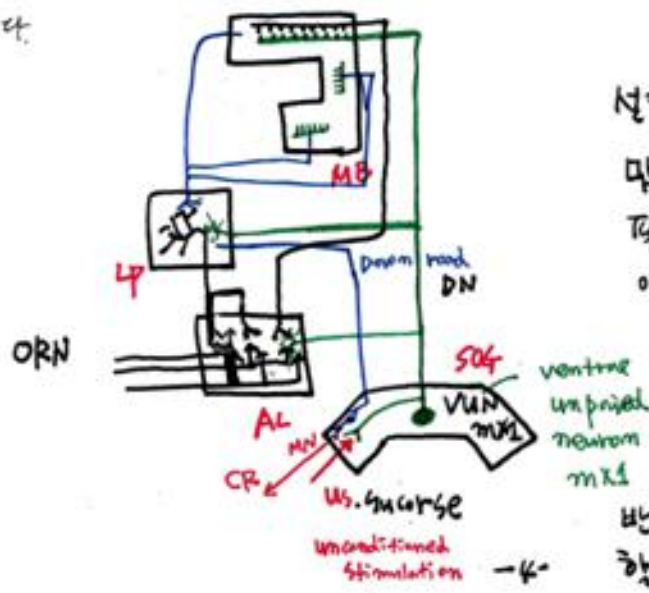 다.
MB
LP
Down road
DN
ORN
AL
SOG
VUN
mx1
ventrne
unpaired
neuron
mx1
MN
CR
us. sucorse
unconditioned
stimulation